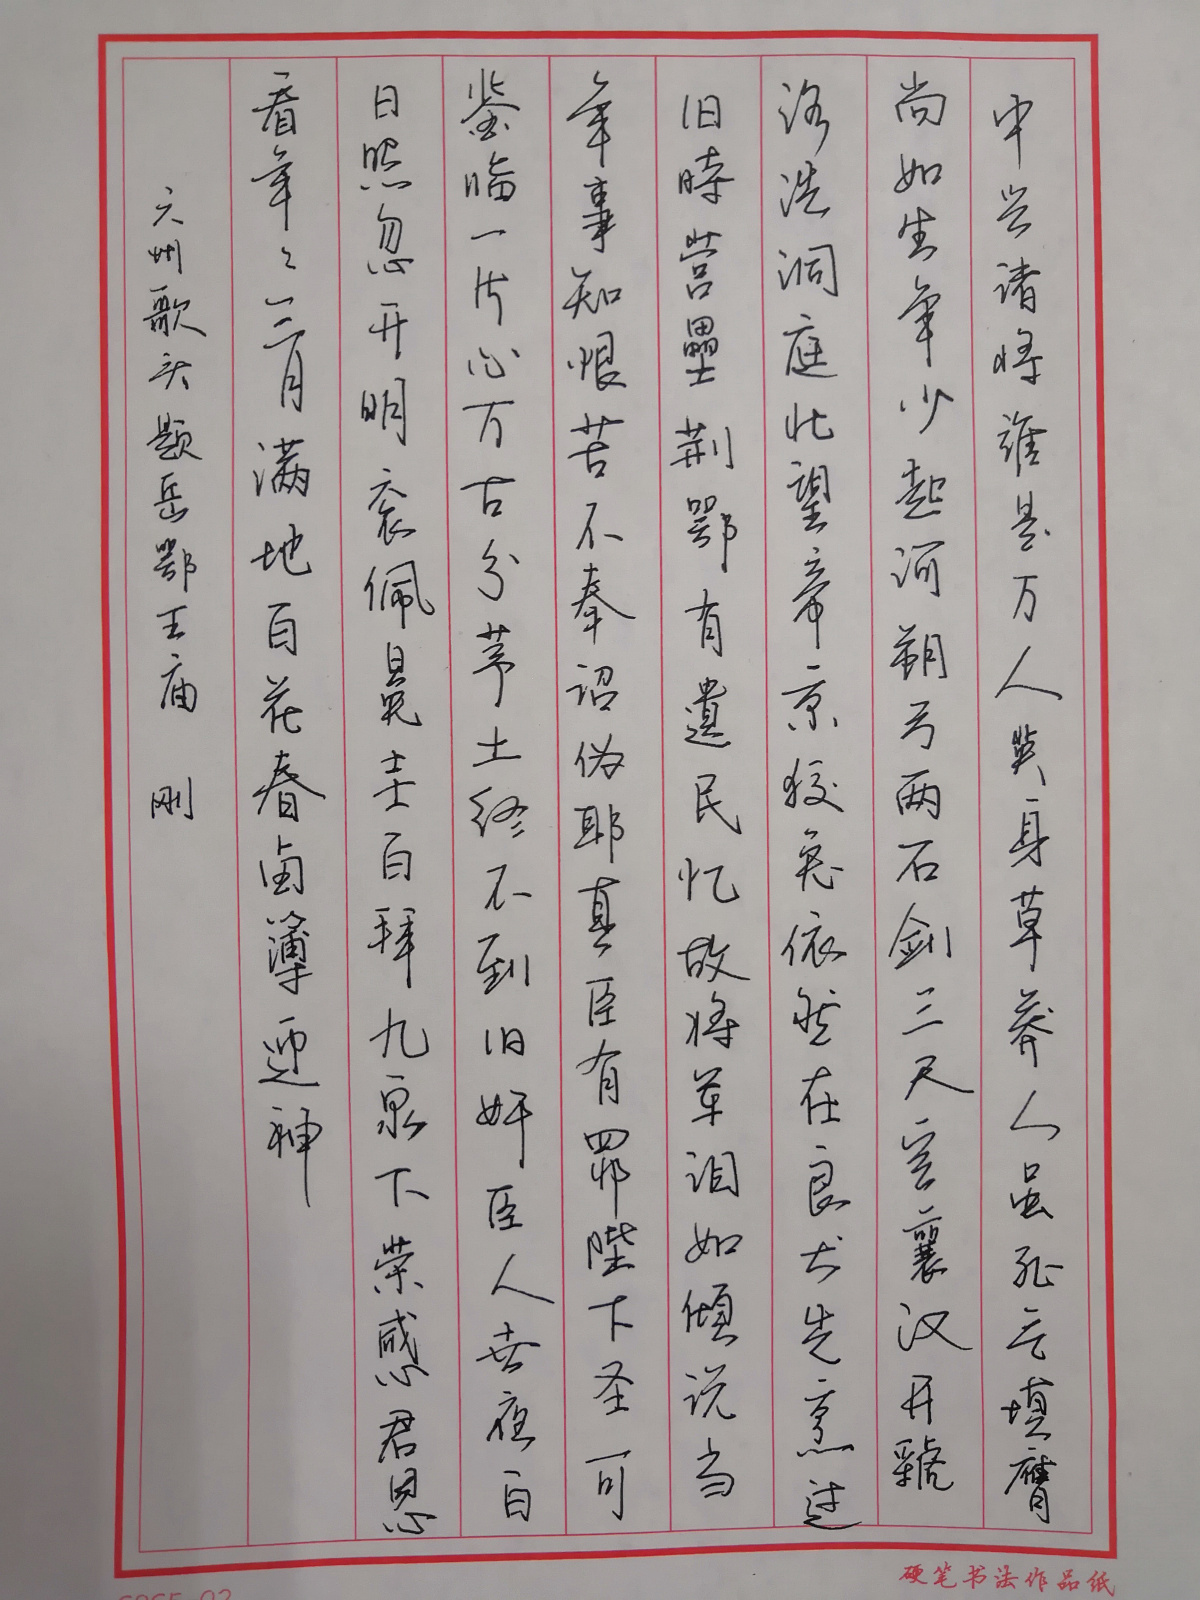 中兴诸将谁是万人英身草莽人虽死气填膺
尚如生年少起河朔弓两石剑三尺定襄汉开虢
洛洗洞庭北望帝京狡兔依然在良犬先烹过
旧時营壘荆鄂有遗民忆故将军泪如倾说当
年事知恨苦不奉诏伪耶真臣有罪陛下圣可
鉴临一片心万古分茅土终不到旧奸臣人世夜白
日照忽开明衮佩冕圭百拜九泉下荣感君恩
看年々三月满地百花春卤簿迎神
六州歌头题岳鄂王庙 刚
硬笔书法作品纸